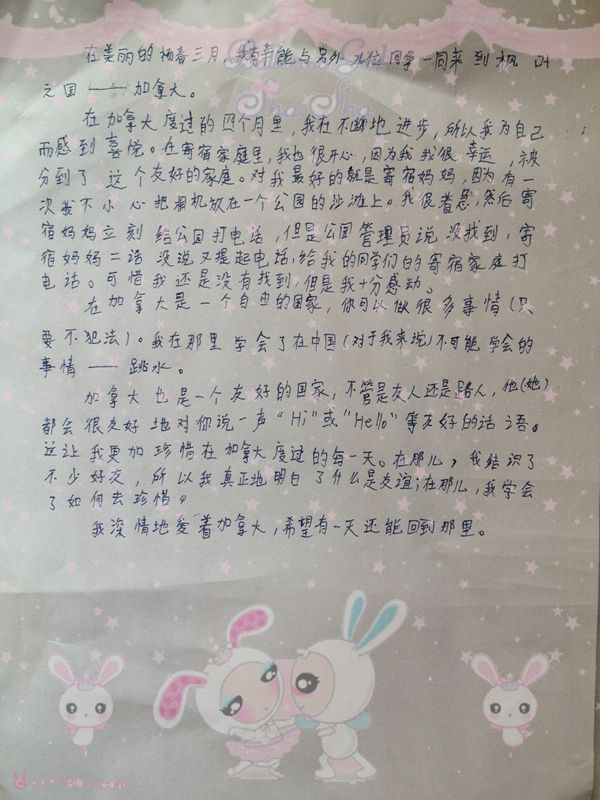 在美丽的扬春三月,我有幸能与另外九位同学一同来到枫叶
之国——加拿大。
在加拿大度过的四个月里,我在不断地进步,所以我为自己
而感到喜悦。在寄宿家庭里,我也很开心,因为我我很幸运,被
分到了这个友好的家庭。对我最好的就是寄宿妈妈,因为有一
次我不小心把相机放在一个公园的沙滩上。我很着急,然后寄
宿妈妈立刻给公园打电话,但是公园管理员说没找到,寄
宿妈妈二话没说又提起电话,给我的同学们的寄宿家庭打
电话。可惜我还是没有找到,但是我十分感动。
在加拿大是一个自由的国家,你可以做很多事情(只
要不犯法)。我在那里学会了在中国(对于我来说)不可能学会的
事情——跳水。
加拿大也是一个友好的国家,不管是友人还是路人,他(她)
都会很友好地对你说一声“Hi”或“Hello”等友好的话语。
这让我更加珍惜在加拿大度过的每一天。在那儿,我结识了
不少好友,所以我真正地明白了什么是友谊;在那儿,我学会
了如何去珍惜。
我深情地爱着加拿大,希望有一天还能回到那里。